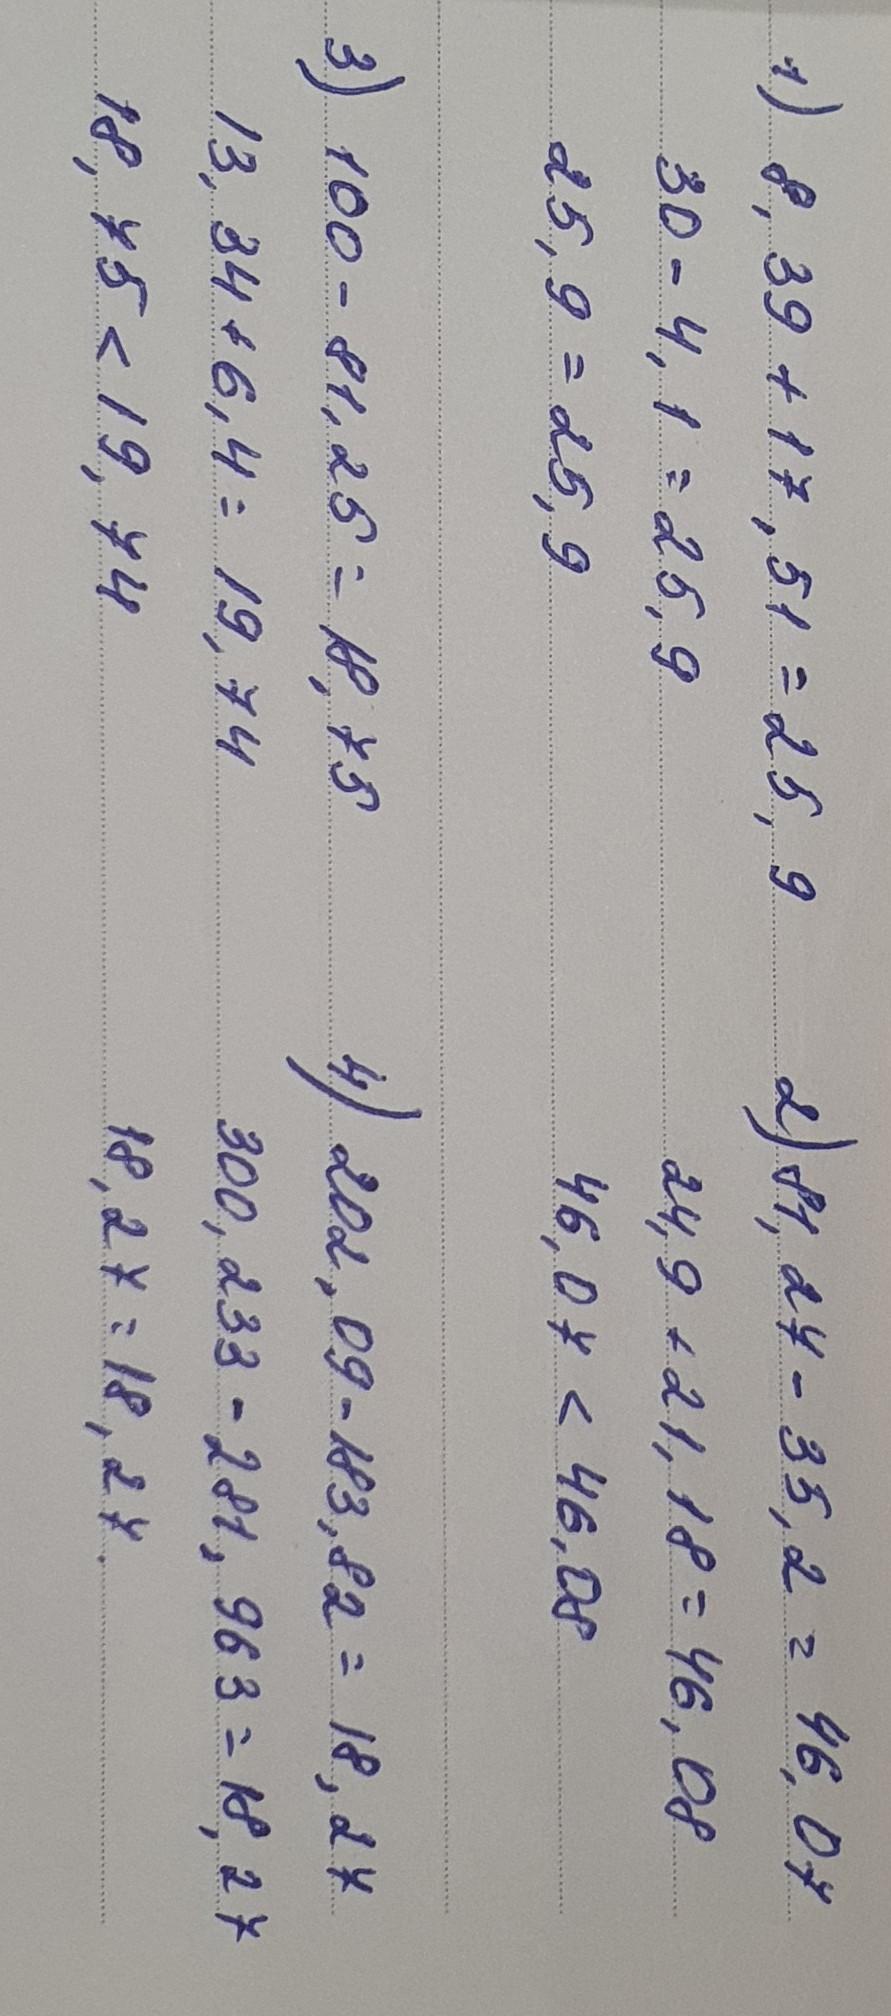 1) 8,39+17,51=25,9
30-4,1=25,9
25,9=25,9
2) 81,27-35,2=46,07
24,9+21,18=46,08
46,07<46,08
3) 100-81,25=18,75
13,34+6,4=19,74
18,75<19,74
4) 202,09-183,82=18,27
300,233-281,963=18,27
18,27=18,27.